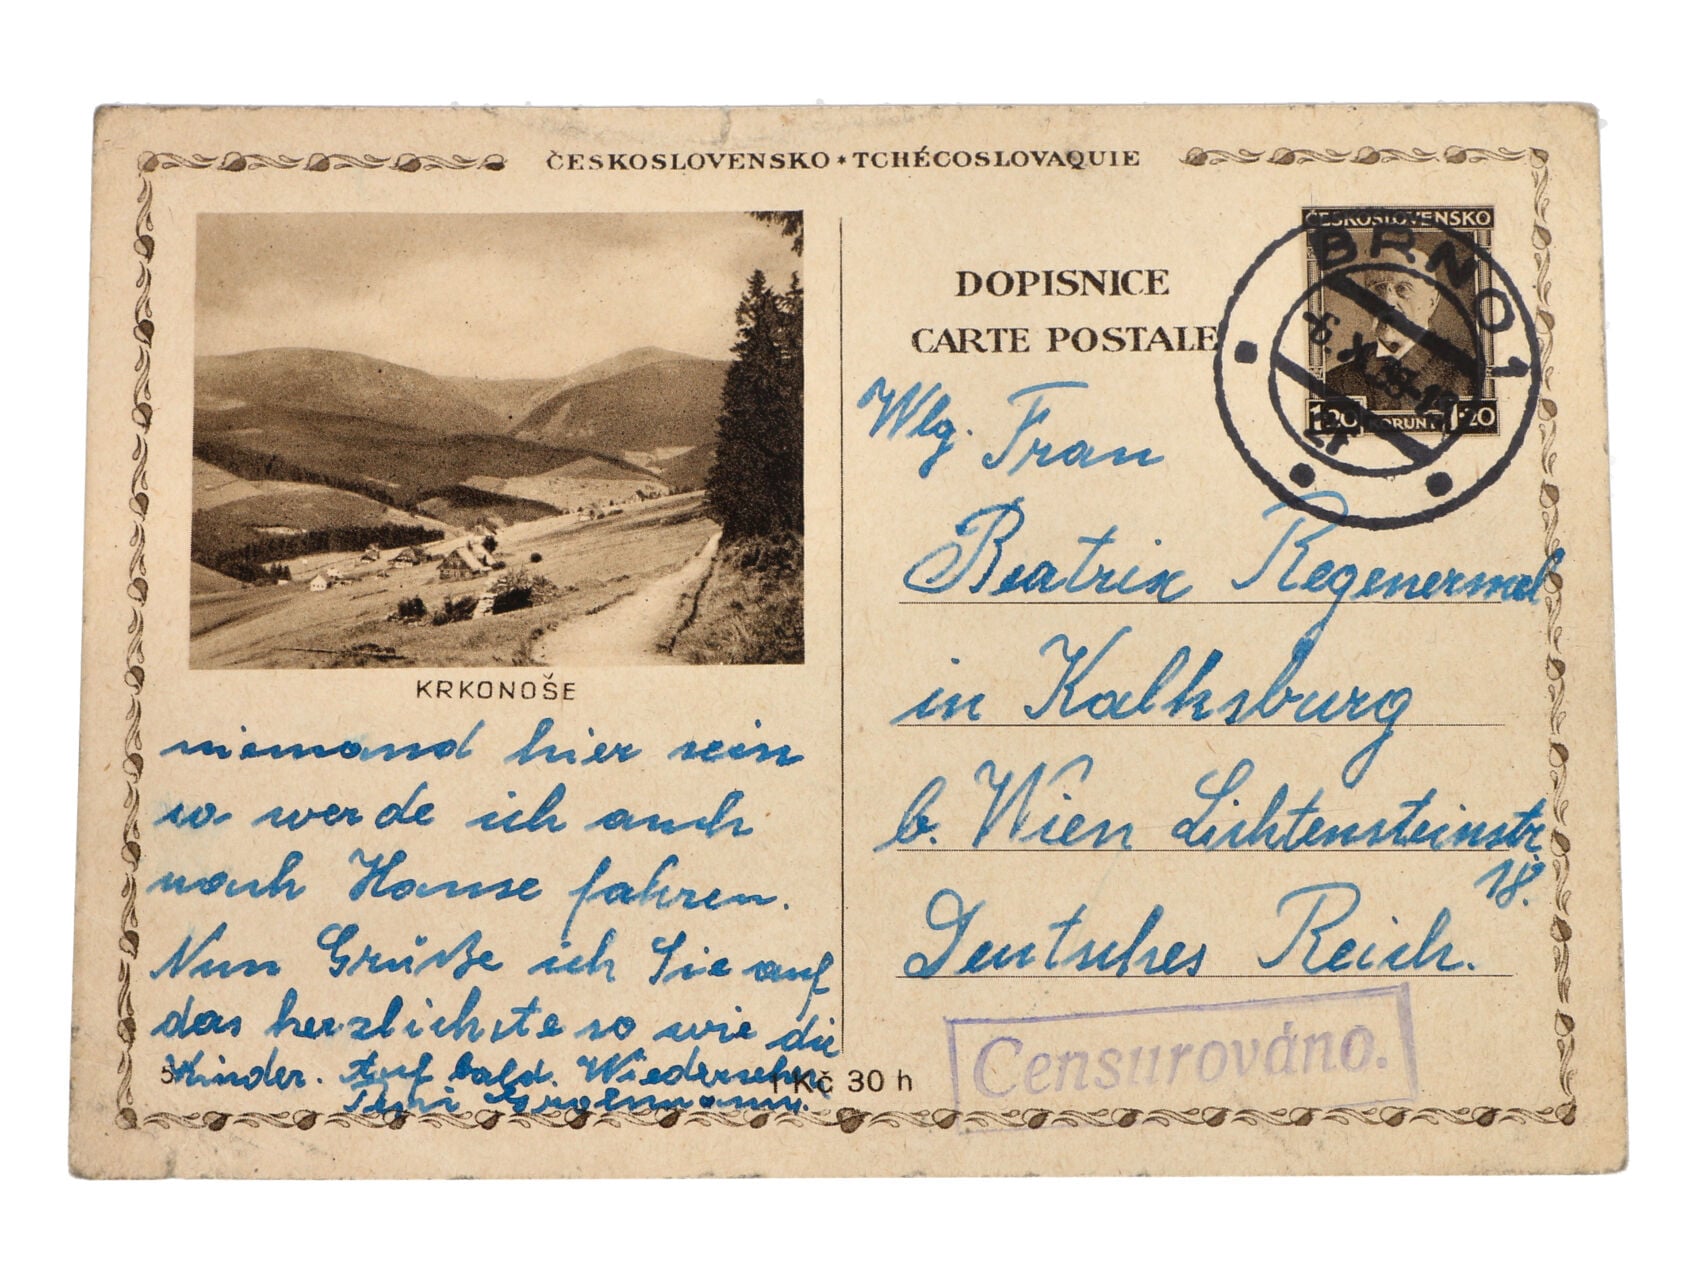 ČESKOSLOVENSKO * TCHÉCOSLOVAQUIE
ČESKOSLOVENSKO
BRNO 1
1·20 KORUNY 1·20
DOPISNICE
CARTE POSTALE
KRKONOŠE
niemand hier sein
so werde ich auch
nach Hause fahren.
Nun Grüße ich Sie auf
das herzlichste so wie die
Kinder. Auf bald. Wiedersehn
1 Kč 30 h
Wlg. Frau
Beatrix Regenermel
in Kalksburg
b. Wien Lichtensteinstr
18.
Deutsches Reich.
Censurováno.